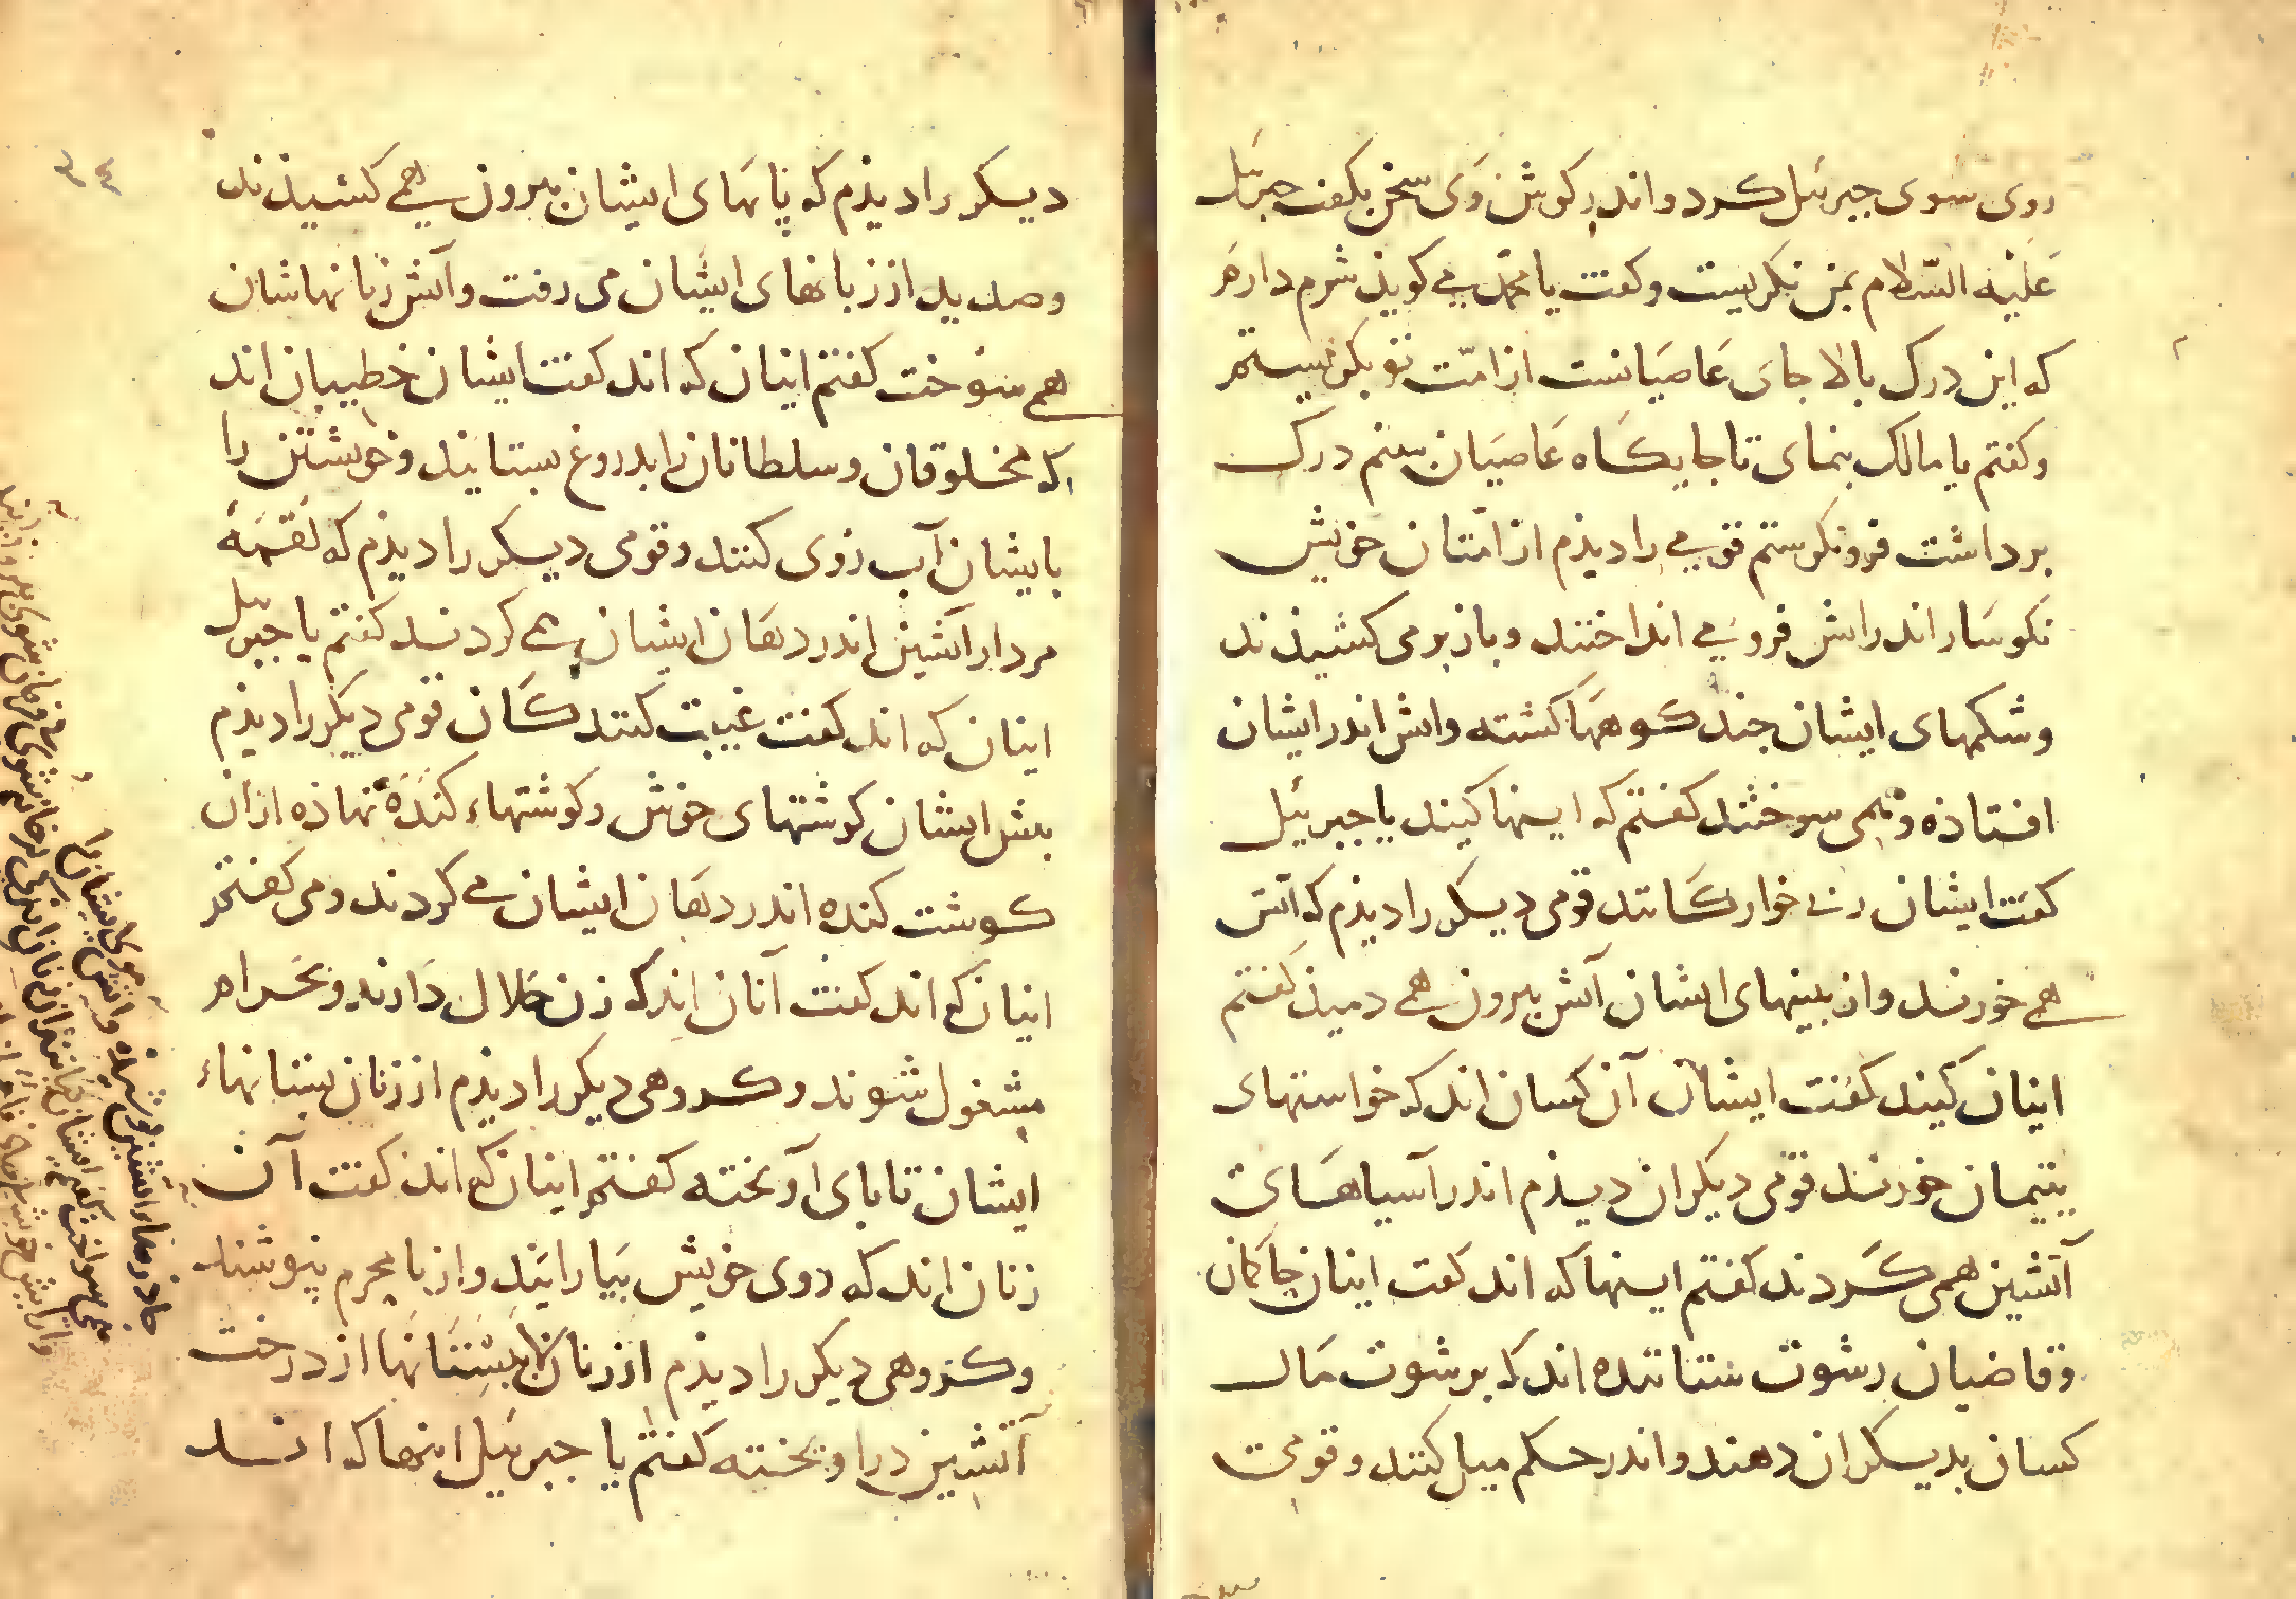 روی سوی جبرئیل کرد و اندر کوش وی سخن بکفت جبرئیل
علیه السّلام بمن نکریست و کفت یا محمد می کوید شرم دارم
که این درک بالا جای عاصیانست از امّت تو بکو نیستم
و کفتم یا مالک بنمای تا جایکاه عاصیان بینم درک
برداشت فرو نکرستم قومی را دیذم از امّتان خویش
نکوسار اندر اتش فرو می انداختند و باز بر می کشیذند
و شکمهای ایشان جند کوهها کشته واتش اندر ایشان
افتاذه و همی سوختند کفتم که اینها کیند یا جبرئیل
کفت ایشان ربی خوارکانند قومی دیکر را دیذم که آتش
همی خوردند و از بینیهای ایشان آتش بیرون همی دمیذ کفتم
اینان کیند کفت ایشان آن کسان اند که خواستهای
یتیمان خوردند قومی دیکران دیذم اندر آسیاهای
آتشین همی کردند کفتم اینها که اند کفت اینان حاکمان
و قاضیان رشوت ستاننده اند که برشوت مال
کسان بدیکران دهند و اندر حکم میل کنند و قومی
۳۴
دیکر را دیذم که پانهای ایشان بیرون همی کشیذند
و صدید از زبانهای ایشان می رفت و آتش زبانهاشان
همی سوخت کفتم اینان که اند کفت ایشان خطیبان اند
که مخلوقان و سلطانان را بدروغ بستایند و خویشتن را
بایشان آب روی کنند و قومی دیکر را دیذم که لقمهٔ
مردار آتشین اندر دهان ایشان همی کردند کفتم یا جبرئیل
اینان که اند کفت غیبت کنندکان قومی دیکر را دیذم
بیش ایشان کوشتهای خوش و کوشتهاء کنده نهاذه ازان
کوشت کنده اندر دهان ایشان می کردند و می کفتم
اینان که اند کفت آنان اند که زن حلال دارند و بحرام
مشغول شوند و کروهی دیکر را دیذم از زنان بستانهاء
ایشان تا بای آویخته کفتم اینان که اند کفت آن
زنان اند که روی خویش بیارایند و از نامحرم نپوشند
و کروهی دیکر را دیذم از زنان بپستانها از درخت
آتشین در اویخته کفتم یا جبرئیل اینها که اند